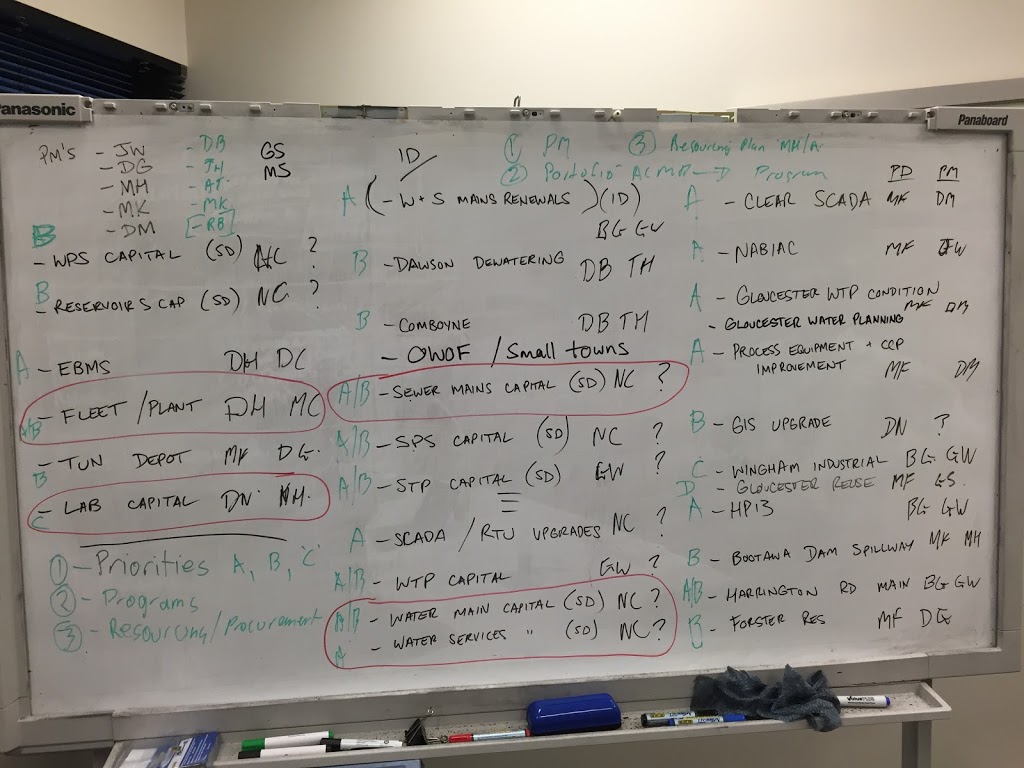 Panasonic
Panaboard
PM'S - JW - DB GS
- DG - JH MS
- MH - AT
- MK - MK
- DM [- RB]
B
- WPS CAPITAL (SD) NC ?
B
- RESERVOIRS CAP (SD) NC ?
A - EBMS DH DC
A/B - FLEET / PLANT DH MC
- TUN DEPOT MF DG.
B
- LAB CAPITAL DN. MH.
C
① - Priorities A, B, 'C'
② - Programs
③ - Resourcing / Procurement
ID
① PM ③ Resourcing Plan MH/A
② Portfolio Program
A (- W + S MAINS RENEWALS) (ID)
BG GW
B - DAWSON DEWATERING DB TH
B - COMBOYNE DB TH
- OWOF / Small towns
A/B - SEWER MAINS CAPITAL (SD) NC ?
A/B - SPS CAPITAL (SD) NC ?
A/B - STP CAPITAL (SD) GW ?
A - SCADA / RTU UPGRADES NC ?
A/B - WTP CAPITAL GW ?
A/B - WATER MAIN CAPITAL (SD) NC ?
A - WATER SERVICES " (SD) NC ?
PD PM
A - CLEAR SCADA MF DM
A - NABIAC MF JW
A - GLOUCESTER WTP CONDITION
MF DM
- GLOUCESTER WATER PLANNING
A - PROCESS EQUIPMENT + CCP
IMPROVEMENT MF DM
B - GIS UPGRADE DN ?
C - WINGHAM INDUSTRIAL BG GW
D - GLOUCESTER REUSE MF GS.
A - HP13 BG GW
B - BOOTAWA DAM SPILLWAY MK MH
A/B - HARRINGTON RD MAIN BG GW
B - FORSTER RES MF DG